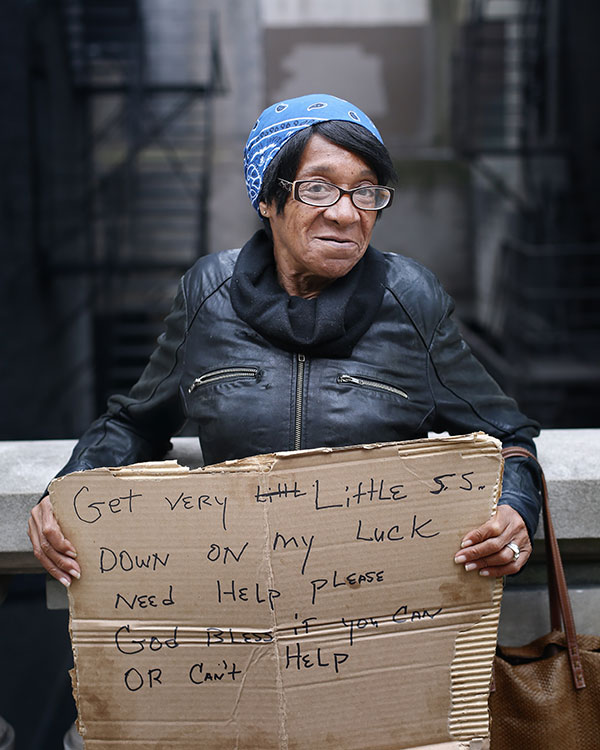 Get very Little S.S..
DOWN ON my Luck
Need Help please
God Bless if you Can
OR Can't Help